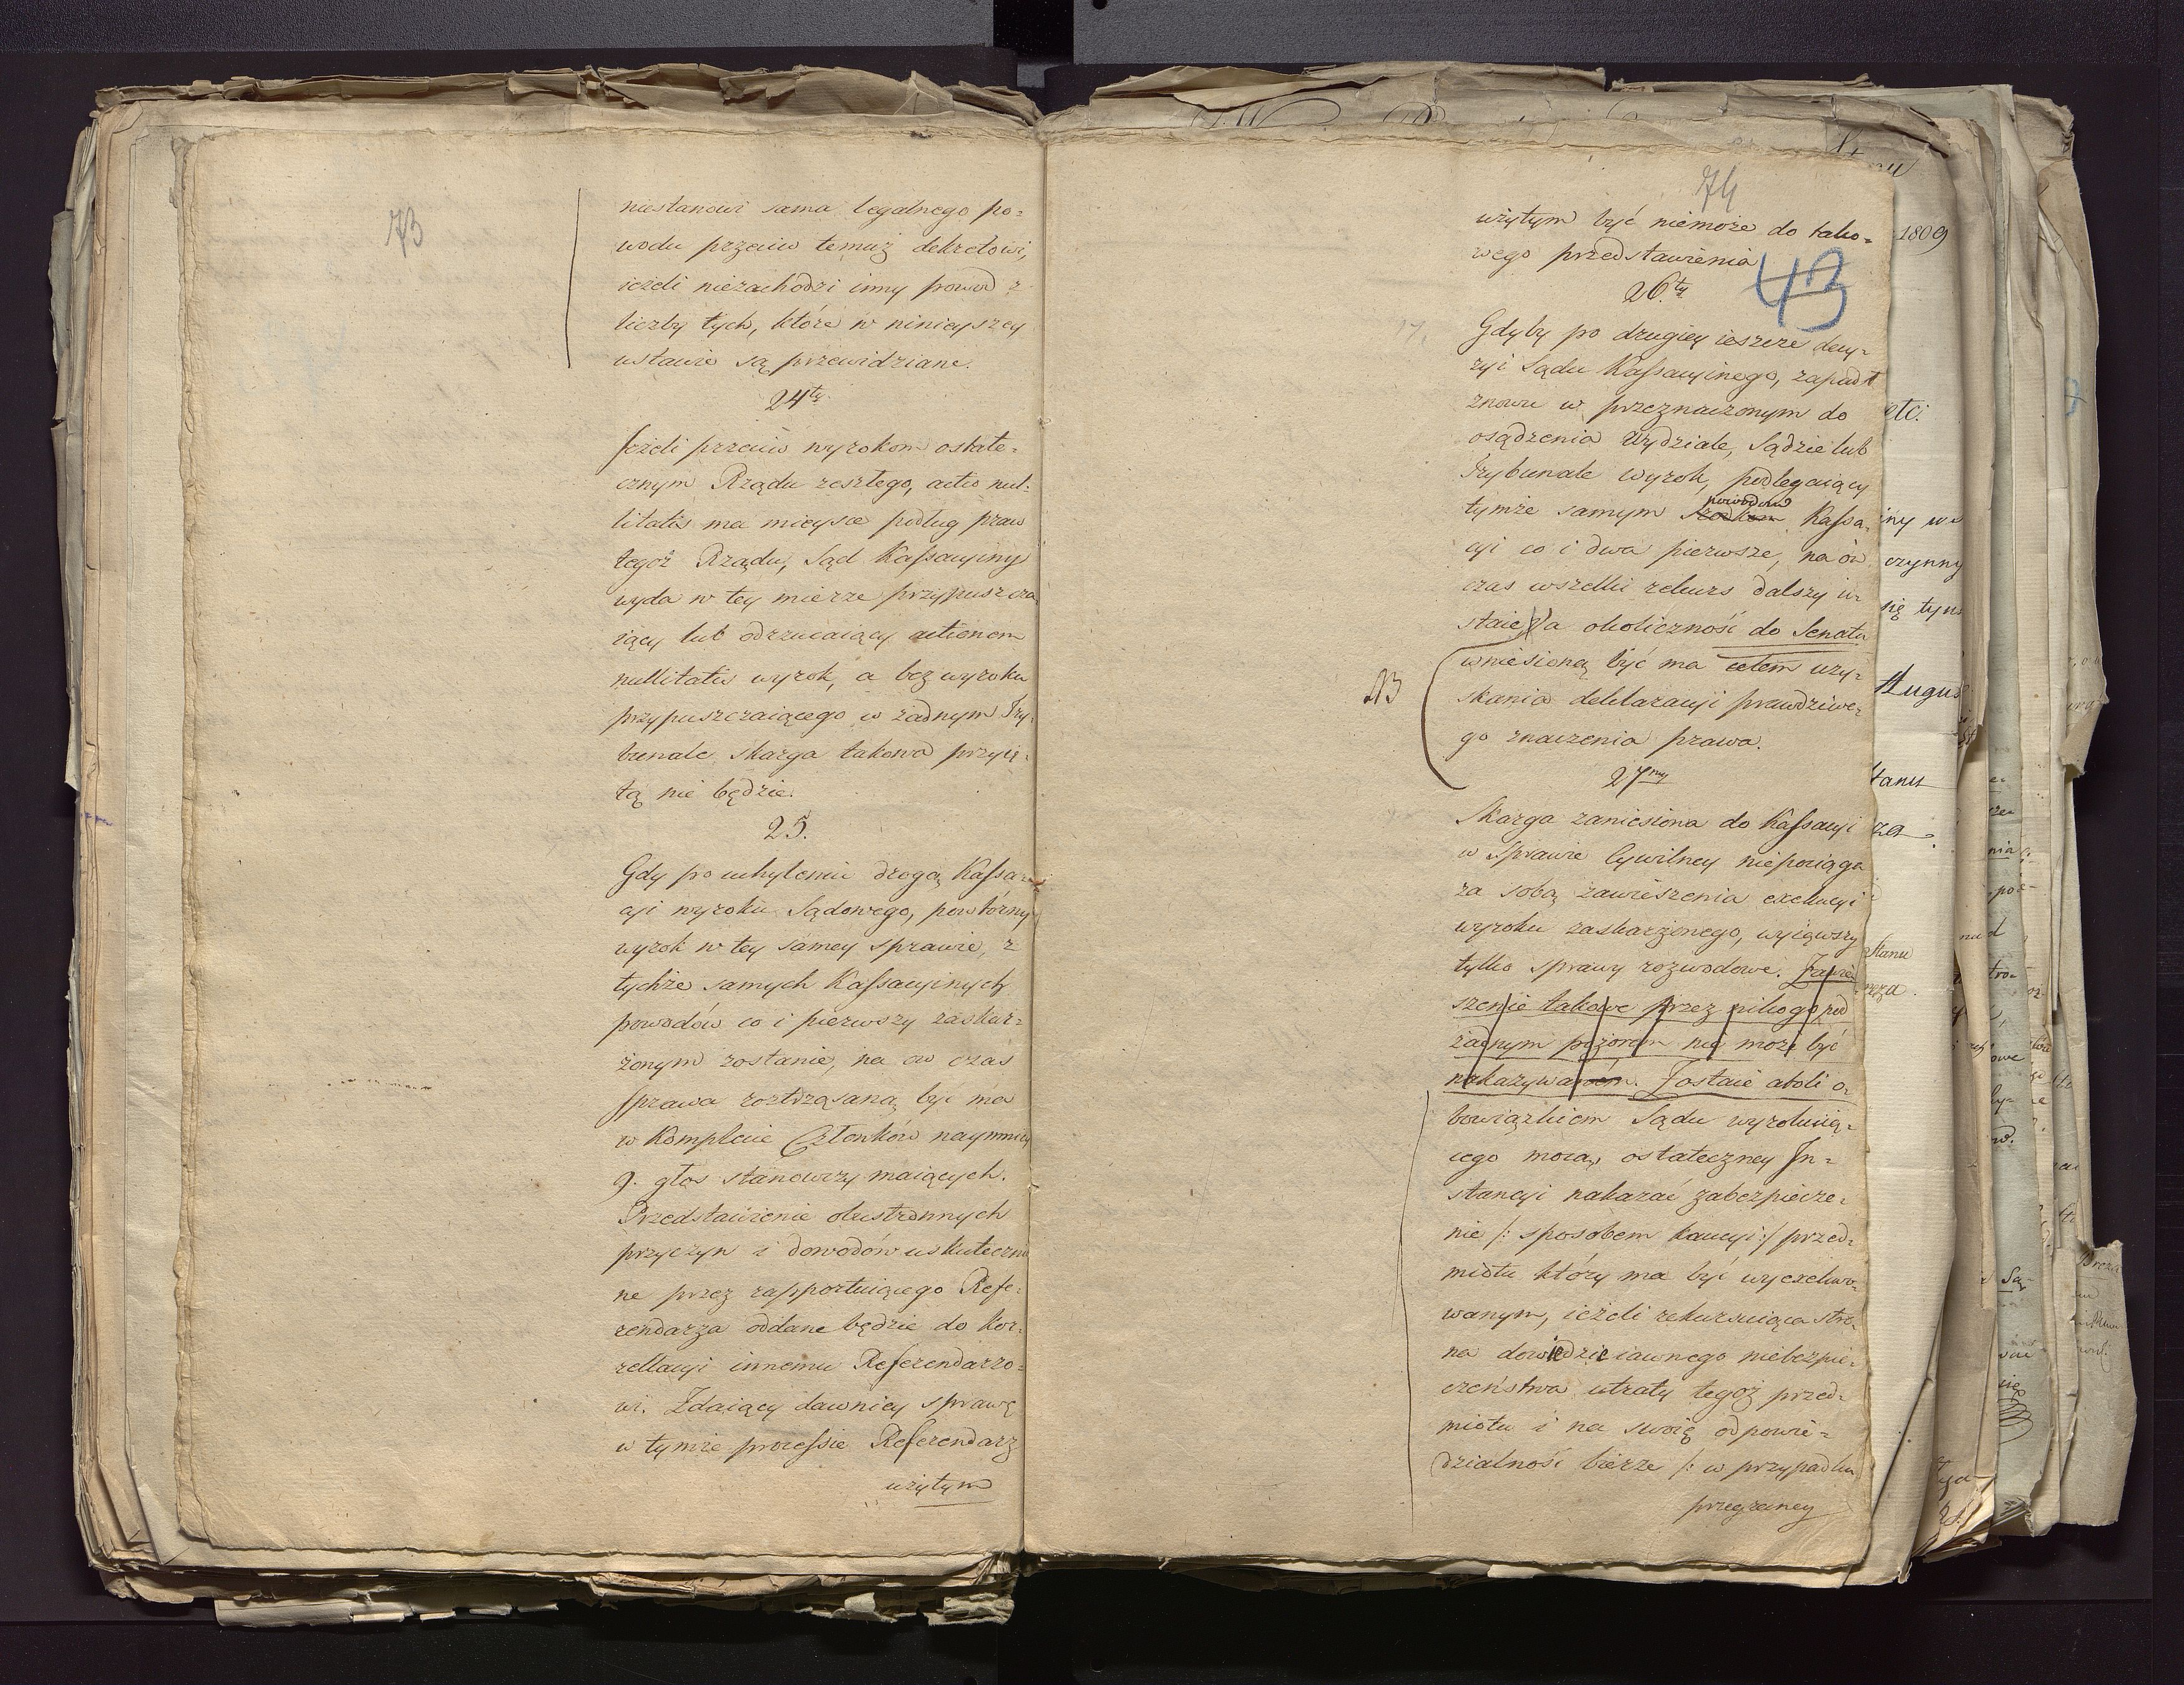 73
niestanowi sama legalnego po=
wodu przeciw temuż dekretowi,
ieżeli niezachodzi inny powod z
liczby tych, które w ninieyszey
ustawie są przewidziane.
24ty
Jeżeli przeciw wyrokom ostate=
cznym Rządu zeszłego, actio nul=
litatis ma mieysce podług praw
tegoż Rządu, Sąd Kassacyiny
wyda w tey mierze przypuszcza
iący lub odrzucaiący actionem
nullitatis wyrok, a bez wyroku
przypuszczaiącego w żadnym Try=
bunale skarga takowa przyię=
tą nie będzie.
25.
Gdy po uchyleniu drogą Kassa=
cyi wyroku Sądowego, powtórny
wyrok w tey samey sprawie, z
tychże samych Kassacyinych
powodów co i pierwszy zaskar=
żonym zostanie, na ow czas
sprawa roztrząsaną być ma
w Komplecie Członków naymniey
9. głos stanowczy maiących.
Przedstawienie obustronnych
przyczyn i dowodów uskuteczni
ne przez rapportuiącego Refe=
rendarza oddane będzie do Kor=
rellacyi innemu Referendarzo=
wi. Zdaiący dawniey sprawę
w tymże processie Referendarz
użytym
74
użytym być niemoże do tako=
wego przedstawienia
43
26.ty
17.
Gdyby po drugiey ieszcze decy=
zyi Sądu Kassacyinego, zapadł
znowu w przeznaczonym do
osądzenia Wydziale, Sądzie lub
Trybunale wyrok, podlegaiący
powodom
tymże samym Kassa=
cyi co i dwa pierwsze, na ów
czas wszelki rekurs dalszy u=
staie, a okoliczność do Senatu
wniesioną być ma celem uzy=
NB
skania deklaracyi prawdziwe=
go znaczenia prawa.
27my
Skarga zaniesiona do Kassacyi
w Sprawie Cywilney niepociąga
za sobą zawieszenia exekucyi
wyroku zaskarżonego, wyiąwszy
tylko sprawy rozwodowe. Zawie=
szenie takowe przez nikogo pod
żadnym pozorem nie może być
nakazywaném. Zostaie atoli o=
bowiązkiem Sądu wyrokuią=
cego mocą ostateczney In=
stancyi nakazać zabezpiecze=
nie /: sposobem kaucyi :/ przed=
miotu który ma być wyexekwo=
wanym, ieżeli rekursuiąca stro=
na dowiedzie iawnego niebezpie=
czeństwa utraty tegoż przed=
miotu i na swoię odpowie=
dzialność bierze /: w przypadku
przegraney
1809